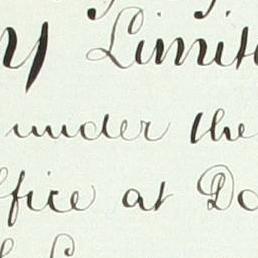 y Limite
under the
ffice at Do